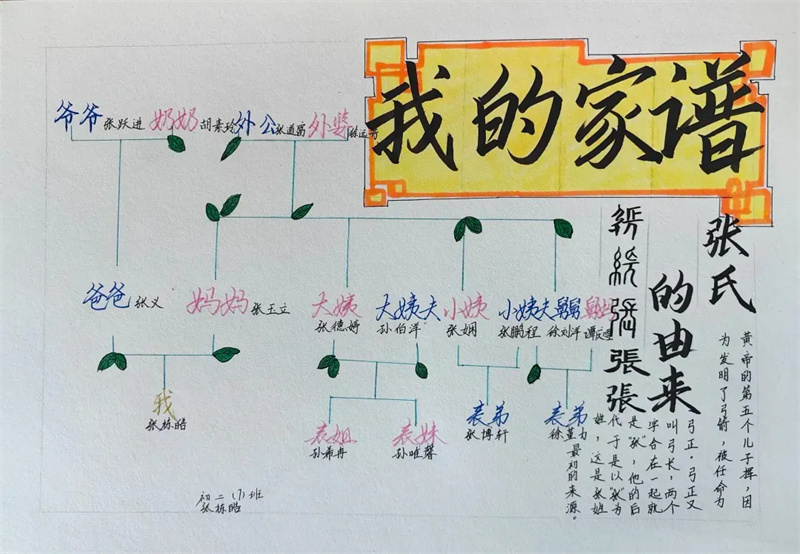 我的家谱
爷爷 张跃进 奶奶 外公 张道富 外婆
爸爸 张义 妈妈 张玉立 大姨 张德婷 大姨夫 孙伯洋 小姨 张娴 小姨夫 张鹏程 舅舅 徐刘洋 舅妈
我 张栋皓
表姐 孙菲冉 表妹 孙唯馨 表弟 张博轩 表弟
初二(7)班
张栋皓
张氏
的由来
張張
黄帝的第五个儿子挥，因
为发明了弓箭，被任命为
弓正。弓正又
叫弓长，两个
字合在一起就
是"张"，他的后
代于是以"张"为
姓，这是张姓
最初的来源。